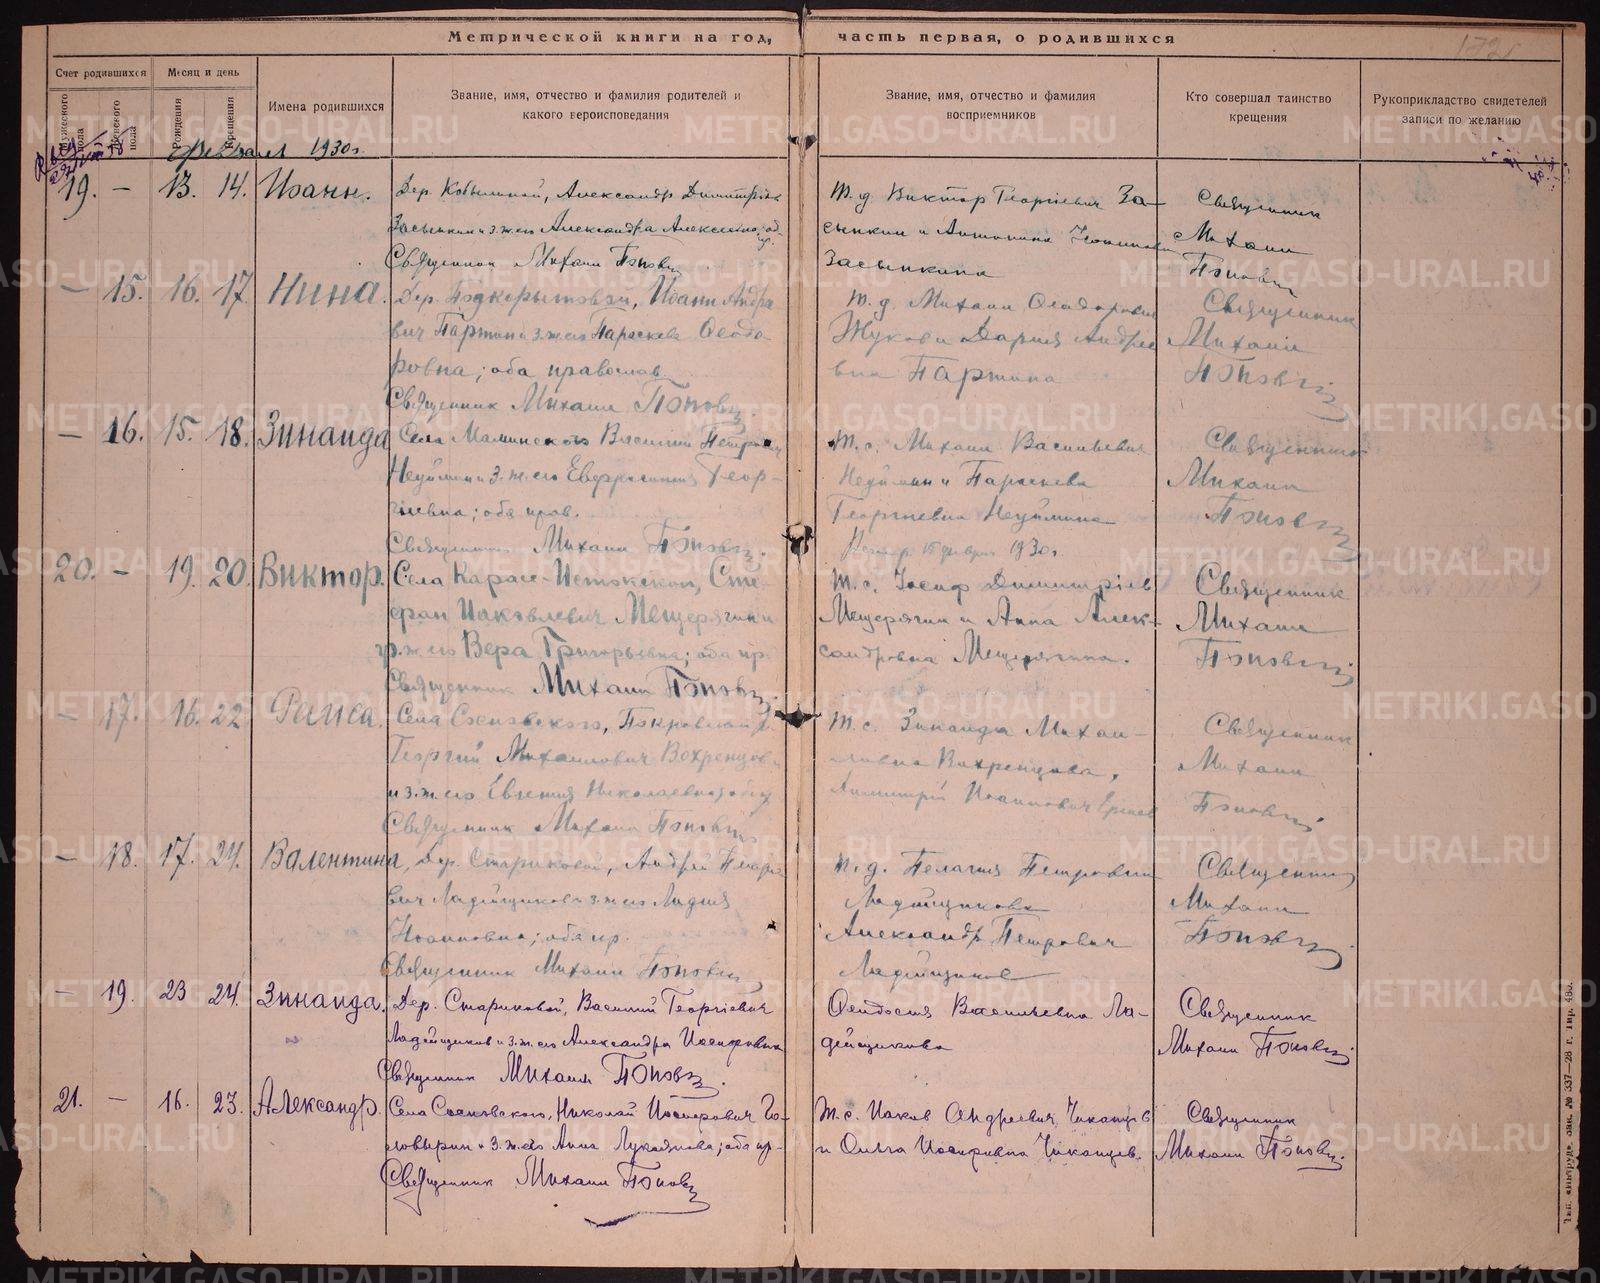 Метрической книги на год, часть первая, о родившихся
172
Счет родившихся
Месяц и день
Мужеского пола
Женского пола
Рождения
Крещения
Имена родившихся
Звание, имя, отчество и фамилия родителей и
какого вероисповедания
Звание, имя, отчество и фамилия
восприемников
Кто совершал таинство
крещения
Рукоприкладство свидетелей
записи по желанию
Февраль 1930 г.
19. – 13. 14. Иоанн.
Дер. Кобылиной, Александр Димитріев
Засыпкин и з. ж. его Александра Алексеевна
Священник Михаил Попов
Т. д. Виктор Георгіевич За-
сыпкин и Антонина Иоанновна
Засыпкина
Священник
Михаил
Попов
– 15. 16. 17. Нина.
Дер. Иоанн Андре
вич Паржин и з. ж. его Параскева Феодо
ровна; оба православ.
Священник Михаил Попов.
Т. д. Михаил Феодорович
Жуков и Дария Андрее
вна Паржина
Священник
Михаил
Попов
– 16. 15. 18. Зинаида
Села Маминского Василий Петрович
Неуймин и з. ж. его Евфросиния Геор-
гиевна; оба прав.
Священник Михаил Попов.
Т. с. Михаил Васильевич
Неуймин и Параскева
Георгиевна Неуймина
1930 г.
Священник
Михаил
Попов
20. – 19. 20. Виктор.
Села Карасе-Истокском, Сте-
фан Иаковлевич Мещерягин и
з. ж. его Вера Григорьевна; оба пр.
Священник Михаил Попов.
Т. с. Иосиф Димитріев
Мещерягин и Анна Алек-
сандровна Мещерягина.
Священник
Михаил
Попов
– 17. 16. 22 Раиса.
Села Сосновского,
Георгий Михаилович Вохренцов
и з. ж. его Евгения Николаевна; оба
Священник Михаил Попов
Т. с. Зинаида Михаи-
ловна Вохренцова,
Димитрий Иоаннович
Священник
Михаил
Попов
– 18. 17. 24. Валентина,
Дер. Стариковой, Андрей
вич Ладейщиков и з. ж. его Лидия
Иоанновна; оба пр.
Священник Михаил Попов
Т. д. Пелагия Петровна
Ладейщикова
Александр Петрович
Ладейщиков
Священник
Михаил
Попов
– 19. 23 24. Зинаида.
Дер. Стариковой, Василий Георгіевич
Ладейщиков и з. ж. его Александра Иосифовна
Священник Михаил Попов.
Феодосия Васильевна Ла-
дейщикова
Священник
Михаил Попов
21. – 16. 23. Александр.
Села Сосновского, Николай Иосифович Го-
ловырин и з. ж. его Анна Лукоянова; оба пр.
Священник Михаил Попов
Т. с. Иаков Андреевич Чиканцев
и Ольга Иосифовна Чиканцев.
Священник
Михаил Попов.
METRIKI.GASO-URAL.RU